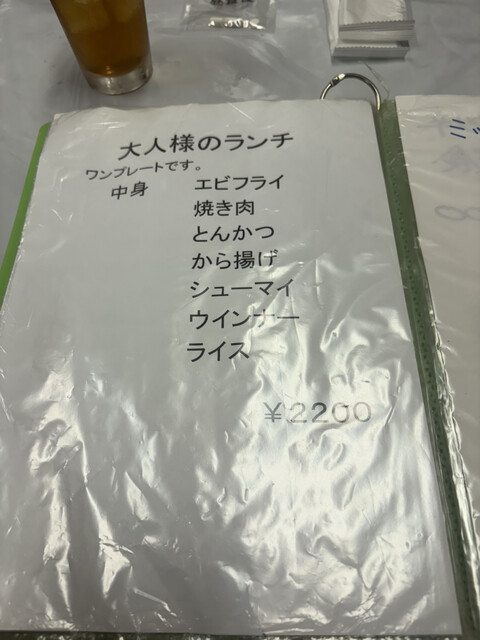 大人様のランチ
ワンプレートです。
中身 エビフライ
焼き肉
とんかつ
から揚げ
シューマイ
ウインナー
ライス
¥2200